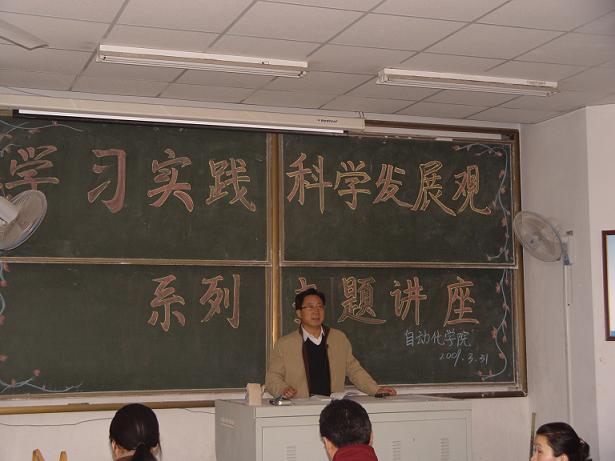 学习实践科学发展观
系列 题讲座
自动化学院
2009.3.31